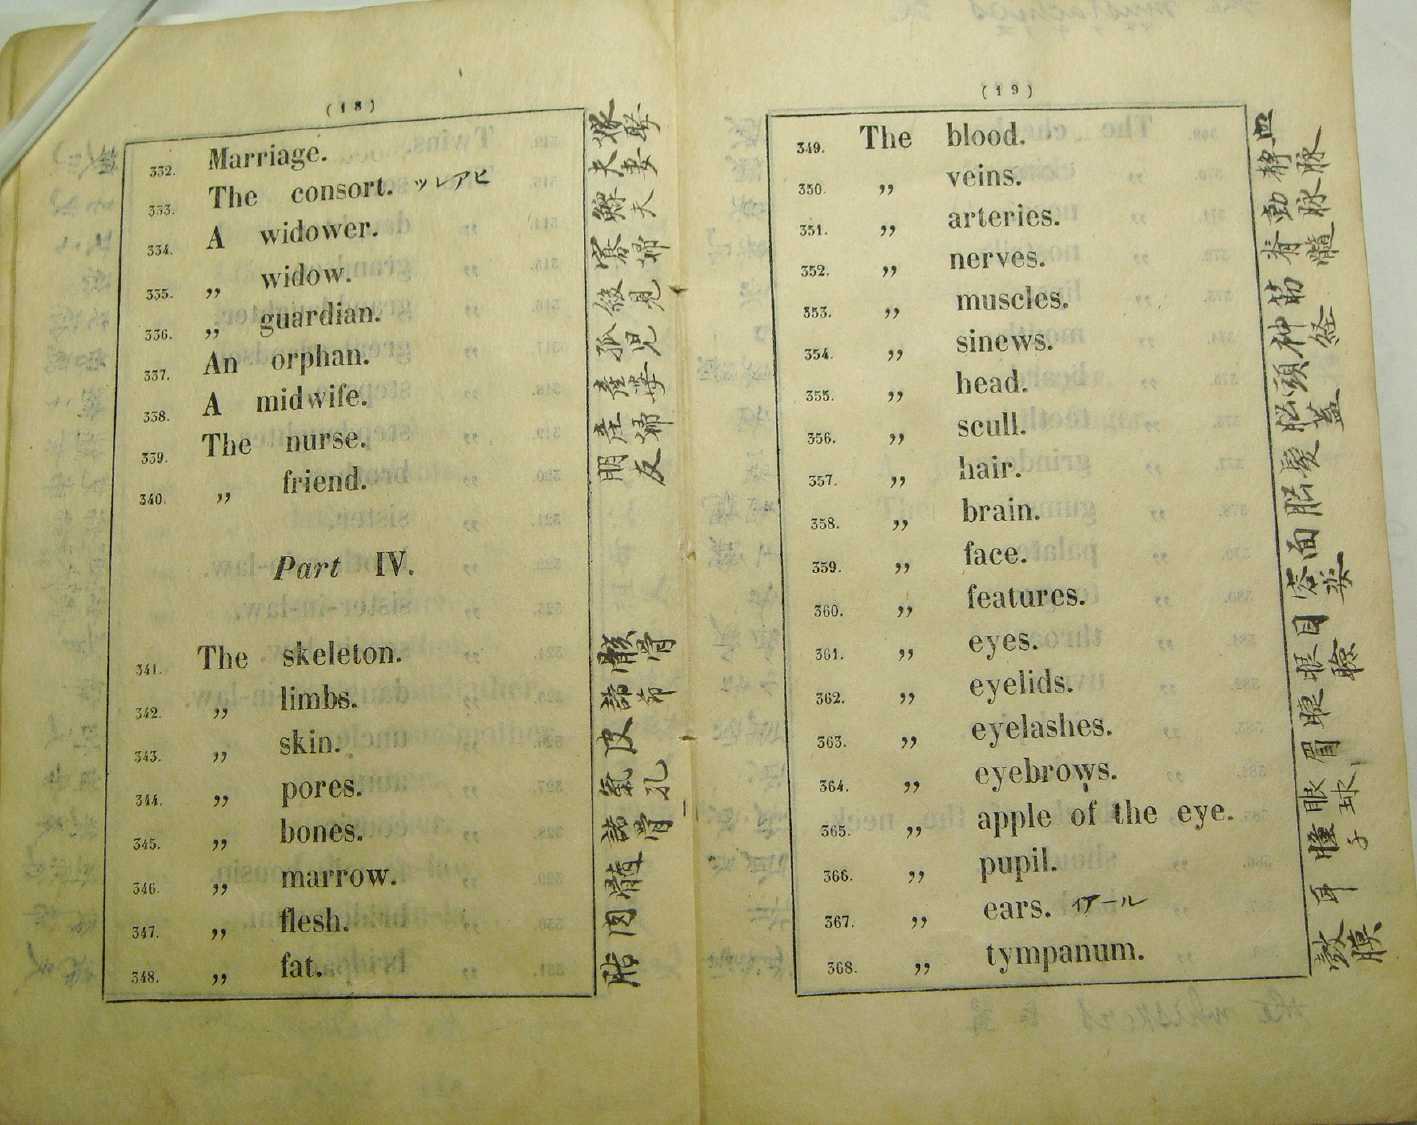 (18)
332. Marriage. 嫁娶
333. The consort. ツレアヒ 夫妻
334. A widower. 鰥夫
335. „ widow. 寡婦
336. „ guardian. 後見
337. An orphan. 孤児
338. A midwife. 産婆
339. The nurse. 産婦
340. „ friend. 朋友
Part IV.
341. The skeleton. 骸骨
342. „ limbs. 諸節
343. „ skin. 皮
344. „ pores. 氣孔
345. „ bones. 諸骨
346. „ marrow. 髄
347. „ flesh. 肉
348. „ fat. 脂
(19)
349. The blood. 血
350. „ veins. 静脉
351. „ arteries. 動脉
352. „ nerves. 脊髓
353. „ muscles. 筋
354. „ sinews. 神経
355. „ head. 頭
356. „ scull. 脳蓋
357. „ hair. 髪
358. „ brain. 脳
359. „ face. 面
360. „ features. 容姿
361. „ eyes. 目
362. „ eyelids. 眼瞼
363. „ eyelashes.
364. „ eyebrows. 眉
365. „ apple of the eye. 眼球
366. „ pupil. 瞳子
367. „ ears. イアール 耳
368. „ tympanum. 鼓膜